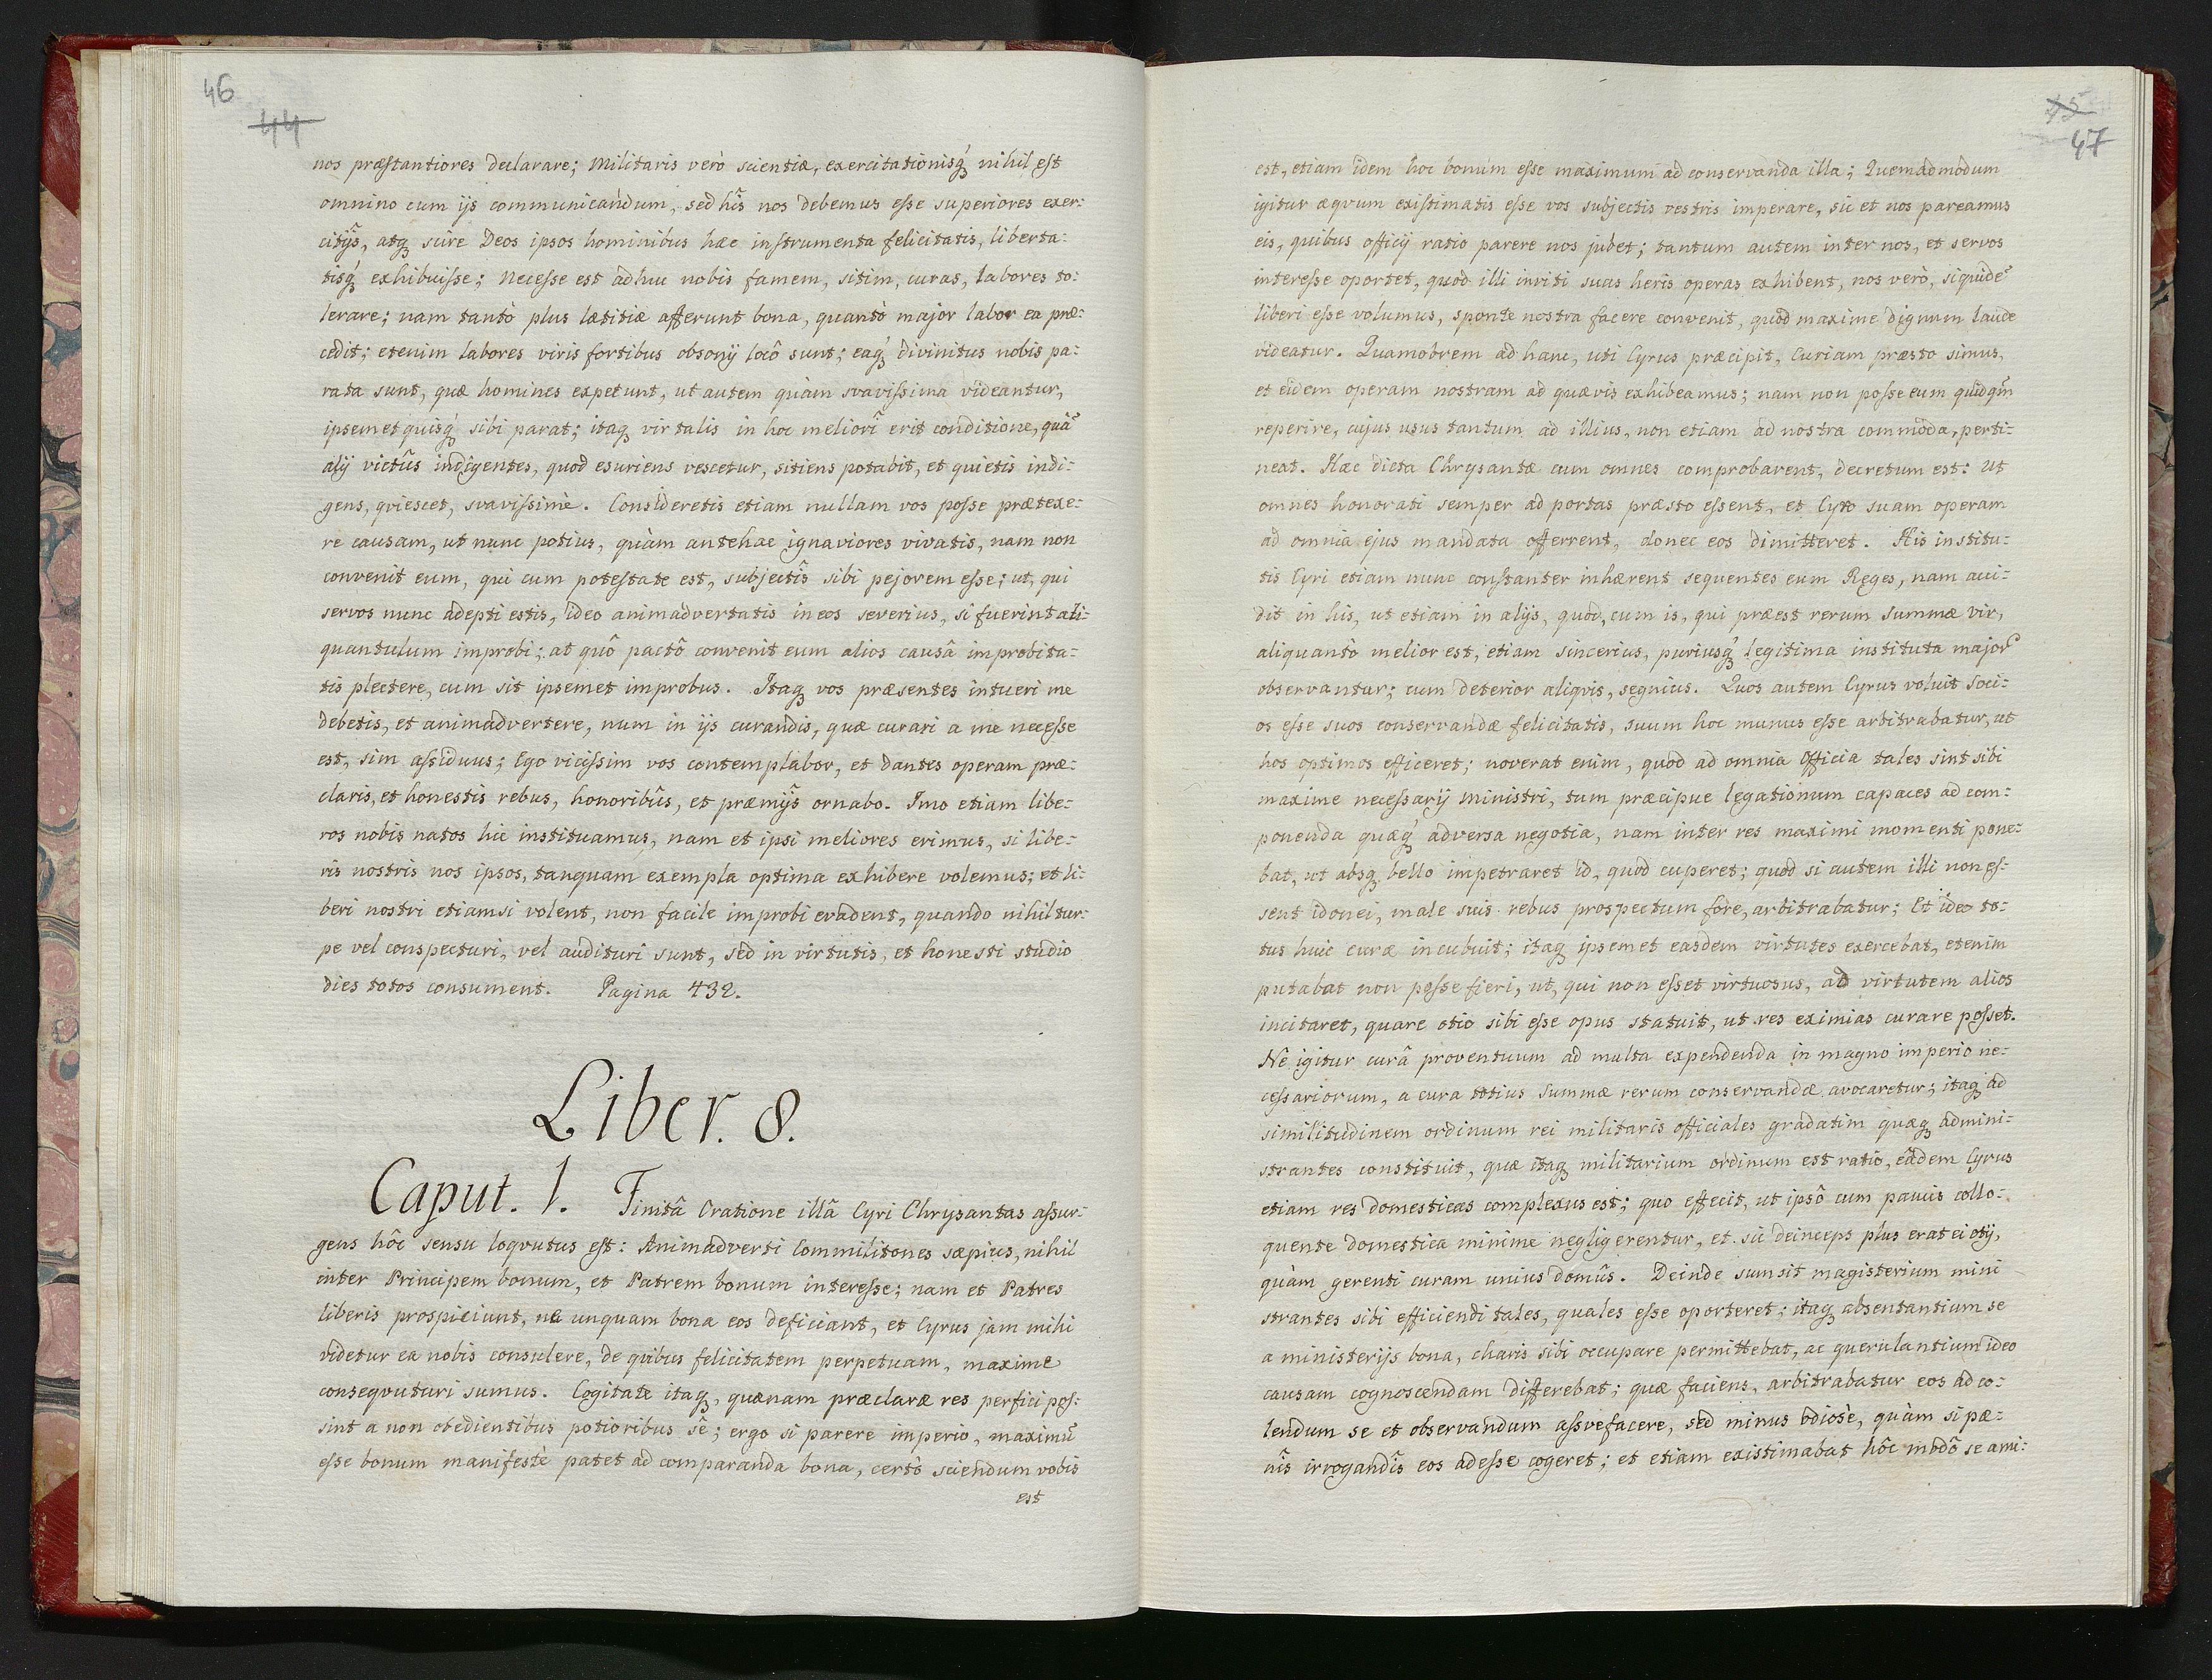 46
44
nos præstantiores declarare; Militaris verò scientiæ, exercitationisq́ nihil est
omnino cum ijs communicandum, sed hîs nos debemus esse superiores exer:
citijs, atq scire Deos ipsos hominibus hæc instrumenta felicitatis, liberta:
tisq́ exhibuisse; Necesse est adhuc nobis famem, sitim, curas, labores to:
lerare; nam tantò plus lætitiæ afferunt bona, quantò major labor ea præ:
cedit; etenim labores viris fortibus obsonij locô sunt; eaq́ divinitus nobis pa:
rata sunt, quæ homines expetunt, ut autem quàm svavissima videantur,
ipsemet quisq́ sibi parat; itaq vir talis in hoc meliori erit conditione, quã
alij victûs indigentes, quod esuriens vescetur, sitiens potabit, et quietis indi:
gens, qviescet, svavissimè. Consideretis etiam nullam vos posse prætexe:
re causam, ut nunc potius, quàm antehac ignaviores vivatis, nam non
convenit eum, qui cum potestate est, subjectîs sibi pejorem esse; ut, qui
servos nunc adepti estis, ideo animadvertatis in eos severius, si fuerint ali:
quantulum improbi; at quô pactô convenit eum alios causâ improbita:
tis plectere, cum sit ipsemet improbus. Itaq vos præsentes intueri me
debetis, et animadvertere, num in ijs curandis, quæ curari a me necesse
est, sim assiduus; Ego vicissim vos contemplabor, et dantes operam præ:
claris, et honestis rebus, honoribûs, et præmijs ornabo. Imo etiam libe:
ros nobis natos hic instituamus, nam et ipsi meliores erimus, si libe:
ris nostris nos ipsos, tanquam exempla optima exhibere volemus; et li:
beri nostri etiamsi volent, non facile improbi evadent, quando nihil tur:
pe vel conspecturi, vel audituri sunt, sed in virtutis, et honesti studio
dies totos consument. Pagina 432.
Liber. 8.
Caput. 1. Finitâ Oratione illâ Cyri Chrysantas assur:
gens hôc sensu loqvutus est: Animadverti Commilitones sæpius, nihil
inter Principem bonum, et Patrem bonum interesse; nam et Patres
liberis prospiciunt, ne unquam bona eos deficiant, et Cyrus jam mihi
videtur ea nobis consulere, de qvibus felicitatem perpetuam, maxime
conseqvuturi sumus. Cogitate itaq, quænam præclaræ res perfici pos:
sint a non obedientibus potioribus sê; ergo si parere imperio, maximũ
esse bonum manifestè patet ad comparanda bona, certò sciendum vobis
est
45
47
est, etiam idem hoc bonum esse maximum ad conservanda illa; Quemadmodum
igitur æqvum existimatis esse vos subjectis vestris imperare, sic et nos pareamus
eis, quibus officij ratio parere nos jubet; tantum autem inter nos, et servos
interesse oportet, quod illi inviti suas heris operas exhibent, nos verò, siquidẽ
liberi esse volumus, sponte nostra facere convenit, quod maxime dignum laude
videatur. Quamobrem ad hanc, uti Cyrus præcipit, Curiam præsto simus,
et eidem operam nostram ad quævis exhibeamus; nam non posse eum quidqm̃
reperire, cujus usus tantum ad illius, non etiam ad nostra commoda, perti:
neat. Hæc dicta Chrysantæ cum omnes comprobarent, decretum est: ut
omnes honorati semper ad portas præsto essent, et Cyro suam operam
ad omnia ejus mandata offerrent, donec eos dimitteret. His institu:
tis Cyri etiam nunc constanter inhærent sequentes eum Reges, nam acci:
dit in his, ut etiam in alijs, quod, cum is, qui præest rerum summæ vir,
aliquantò melior est, etiam sincerius, puriusq́ legitima instituta majorũ
observantur; cum deterior aliqvis, segnius. Quos autem Cyrus voluit soci:
os esse suos conservandæ felicitatis, suum hoc munus esse arbitrabatur, ut
hos optimos efficeret; noverat enim, quod ad omnia officia tales sint sibi
maxime necessarij ministri, tum præcipue legationum capaces ad com:
ponenda quæq́ adversa negotia, nam inter res maximi momenti pone:
bat, ut absq bello impetraret id, quod cuperet; quod si autem illi non es:
sent idonei, male suis rebus prospectum fore, arbitrabatur; Et ideo to:
tus huic curæ incubuit; itaq ipsemet easdem virtutes exercebat, etenim
putabat non posse fieri, ut, qui non esset virtuosus, ad virtutem alios
incitaret, quare otio sibi esse opus statuit, ut res eximias curare posset.
Nê igitur curâ proventuum ad multa expendenda in magno imperio ne:
cessariorum, a cura totius summæ rerum conservandæ avocaretur; itaq ad
similitudinem ordinum rei militaris officiales gradatim quæq admini:
strantes constituit, quæ itaq militarium ordinum est ratio, eâdem Cyrus
etiam res domesticas complexus est; quo effecit, ut ipsô cum paucis collo:
quente domestica minime negligerentur, et sic deinceps plus erat ei otij,
quàm gerenti curam unius domûs. Deinde sumsit magisterium mini
strantes sibi efficiendi tales, quales esse oporteret; itaq absentantium se
a ministerijs bona, charis sibi occupare permittebat, ac querulantium ideo
causam cognoscendam differebat; quæ faciens, arbitrabatur eos ad co:
lendum se et observandum assvefacere, sed minus odiosè, quàm si pæ:
nîs irrogandîs eos adesse cogeret; et etiam existimabat hôc modô se ami: